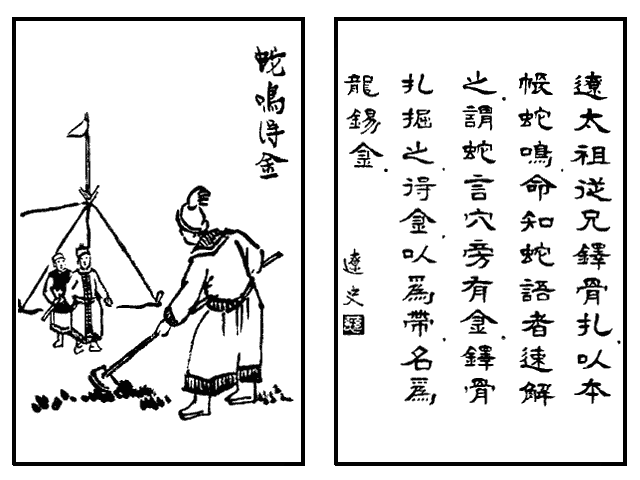 蛇鳴得金
遼太祖從兄鐸骨扎以本
帳蛇鳴命知蛇語者速解
之謂蛇言穴旁有金鐸骨
扎掘之得金以爲帶名爲
龍錫金
遼史